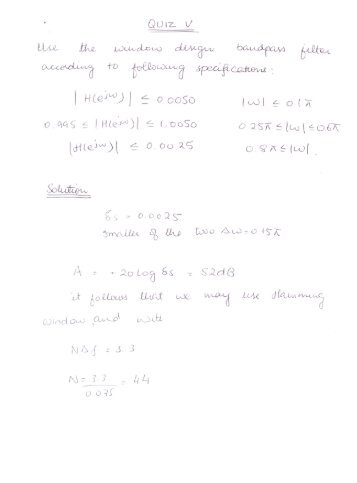 QUIZ V
Use the window design bandpass filter
according to following specifications:
|H(e^jw)| ≤ 0.0050 |w| ≤ 0.1π
0.995 ≤ |H(e^jw)| ≤ 1.0050 0.25π ≤ |w| ≤ 0.6π
|H(e^jw)| ≤ 0.0025 0.8π ≤ |w|.
Solution
δs = 0.0025
smaller of the two Δw = 0.15π
A = -20 log δs = 52dB
it follows that we may use Hamming
window, and with
NΔf = 3.3
N = 3.3/0.075 = 44